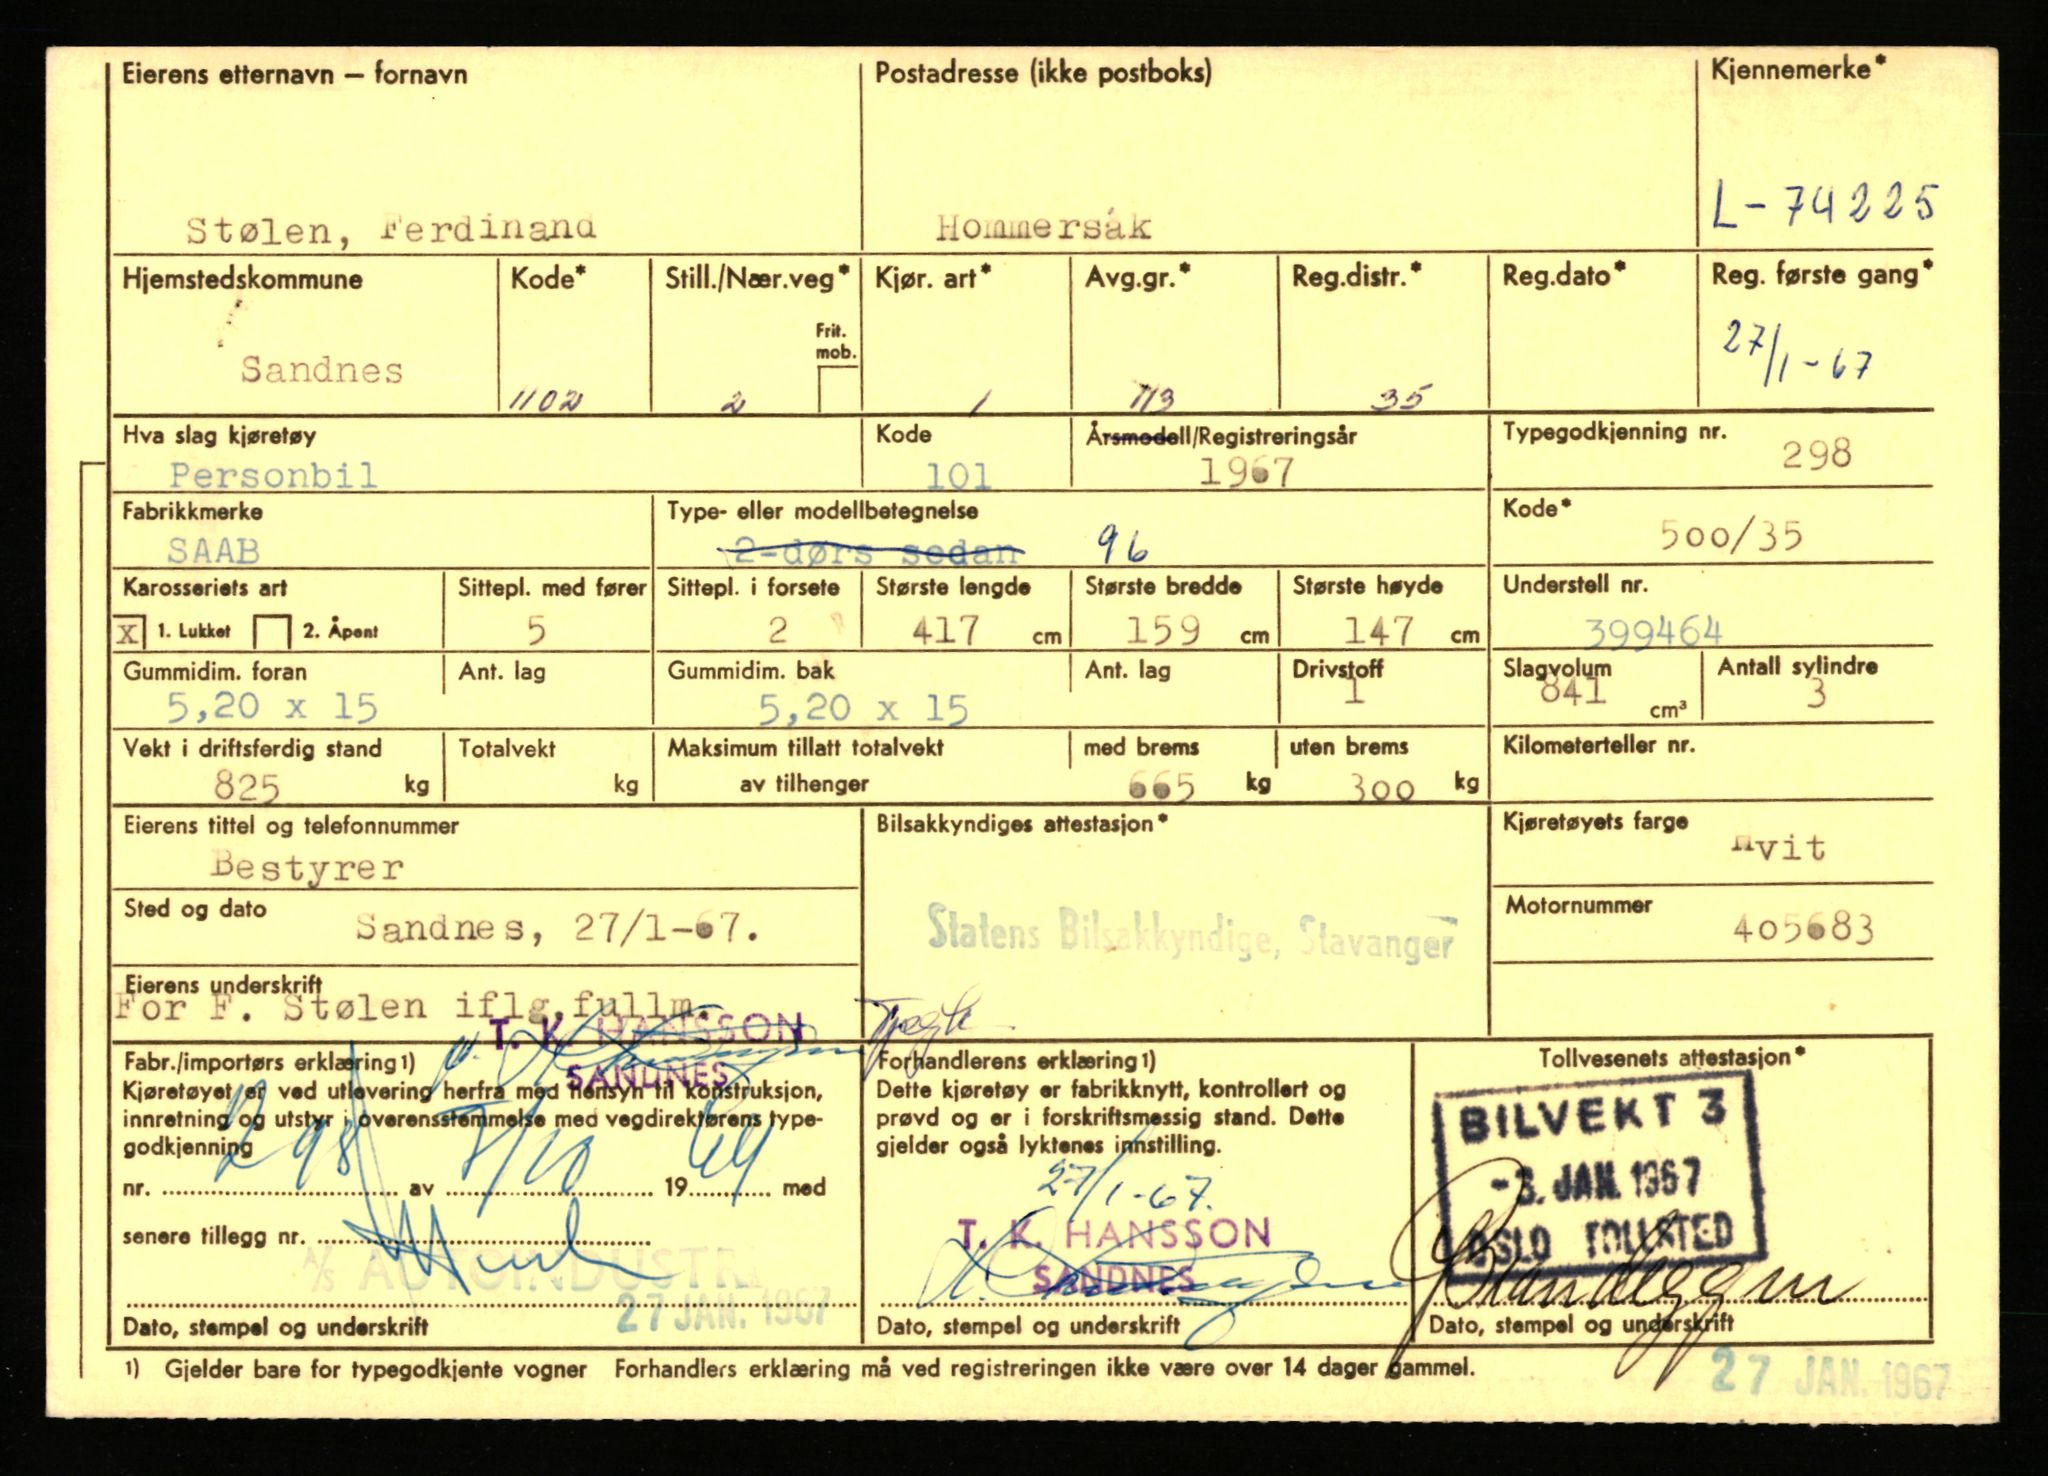 Eierens etternavn – fornavn
Postadresse (ikke postboks)
Kjennemerke*
Stølen, Ferdinand
Hommersåk
L-74225
Hjemstedskommune
Kode*
Still./Nær.veg*
Kjør. art*
Avg.gr.*
Reg.distr.*
Reg.dato*
Reg. første gang*
Frit. mob.
Sandnes
1102
2
1
113
35
27/1-67
Hva slag kjøretøy
Kode
Årsmodell/Registreringsår
Typegodkjenning nr.
Personbil
101
1967
298
Fabrikkmerke
Type- eller modellbetegnelse
Kode*
SAAB
2-dørs sedan
96
500/35
Karosseriets art
Sittepl. med fører
Sittepl. i forsete
Største lengde
Største bredde
Største høyde
Understell nr.
X 1. Lukket 2. Åpent
5
2
417 cm
159 cm
147 cm
399464
Gummidim. foran
Ant. lag
Gummidim. bak
Ant. lag
Drivstoff
Slagvolum
Antall sylindre
5,20 x 15
5,20 x 15
1
841 cm³
3
Vekt i driftsferdig stand
Totalvekt
Maksimum tillatt totalvekt
med brems
uten brems
Kilometerteller nr.
825 kg
kg
av tilhenger
665 kg
300 kg
Eierens tittel og telefonnummer
Bilsakkyndiges attestasjon*
Kjøretøyets farge
Bestyrer
Hvit
Sted og dato
Sandnes, 27/1-67.
Statens Bilsakkyndige, Stavanger
Motornummer
405683
Eierens underskrift
For F. Stølen iflg.fullm.
T. K. HANSSON
SANDNES
Fabr./importørs erklæring 1)
Kjøretøyet er ved utlevering herfra med hensyn til konstruksjon,
innretning og utstyr i overensstemmelse med vegdirektørens type-
godkjenning
nr. 298 av 8/10 1964 med
senere tillegg nr.
A/S AUTOINDUSTRI
27 JAN. 1967
Dato, stempel og underskrift
Forhandlerens erklæring 1)
Dette kjøretøy er fabrikknytt, kontrollert og
prøvd og er i forskriftsmessig stand. Dette
gjelder også lyktenes innstilling.
27/1-67.
T. K. HANSSON
SANDNES
Dato, stempel og underskrift
Tollvesenets attestasjon*
BILVEKT 3
-3. JAN. 1967
OSLO TOLLSTED
Dato, stempel og underskrift
1) Gjelder bare for typegodkjente vogner Forhandlers erklæring må ved registreringen ikke være over 14 dager gammel.
27 JAN. 1967